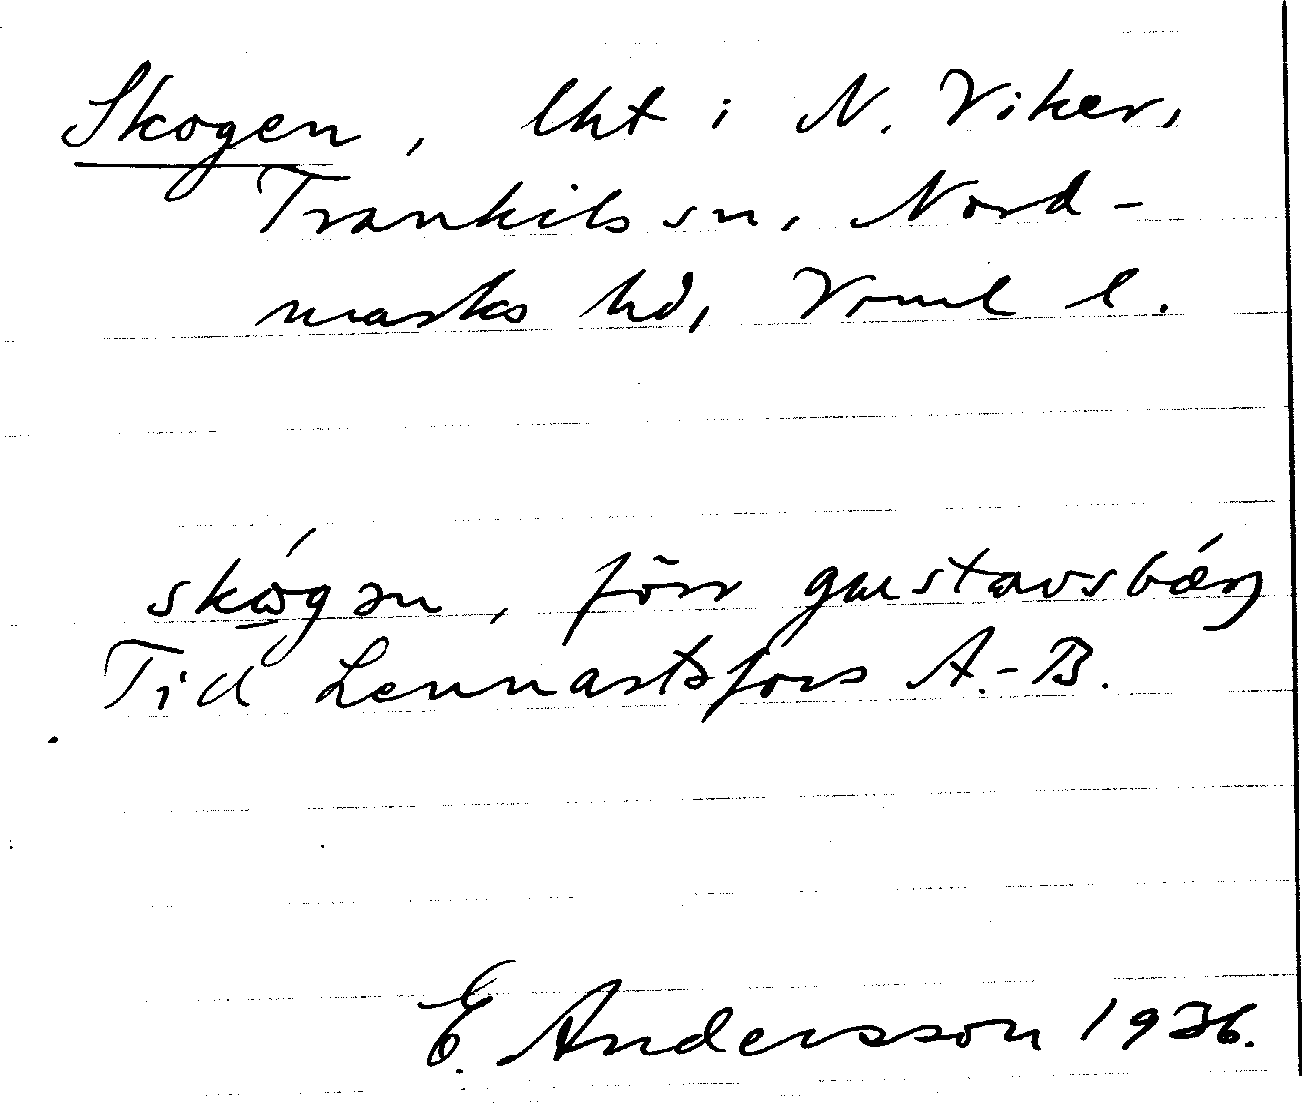 Skogen, lht i N. Viker,
Trankils sn, Nord-
marks hd, Vrml l.
skógən, förr gustavsbǽrj
Tid Lennartsfors A.-B.
E. Andersson 1936.